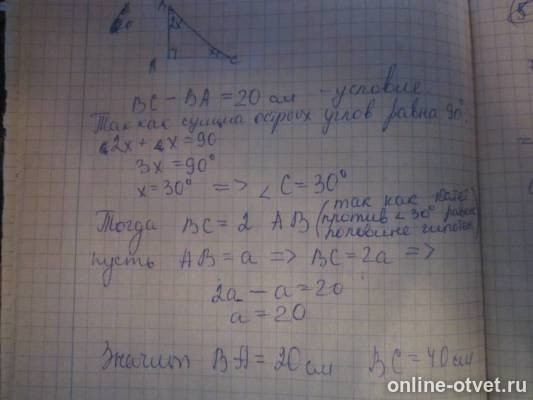 2x
A
x
C
BC - BA = 20 см - условие
Так как сумма острых углов равна 90°.
2x + x = 90
3x = 90°
x = 30° => ∠ C = 30°
Тогда BC = 2 AB (так как катет против ∠ 30° равен половине гипотен
пусть AB = a => BC = 2a =>
2a - a = 20
a = 20
Значит BA = 20 см BC = 40 см
online-otvet.ru